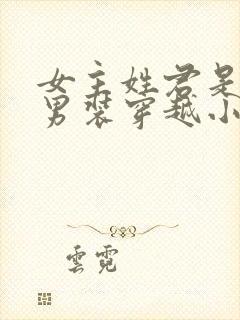 女主姓君是
男装穿越小
雲霓